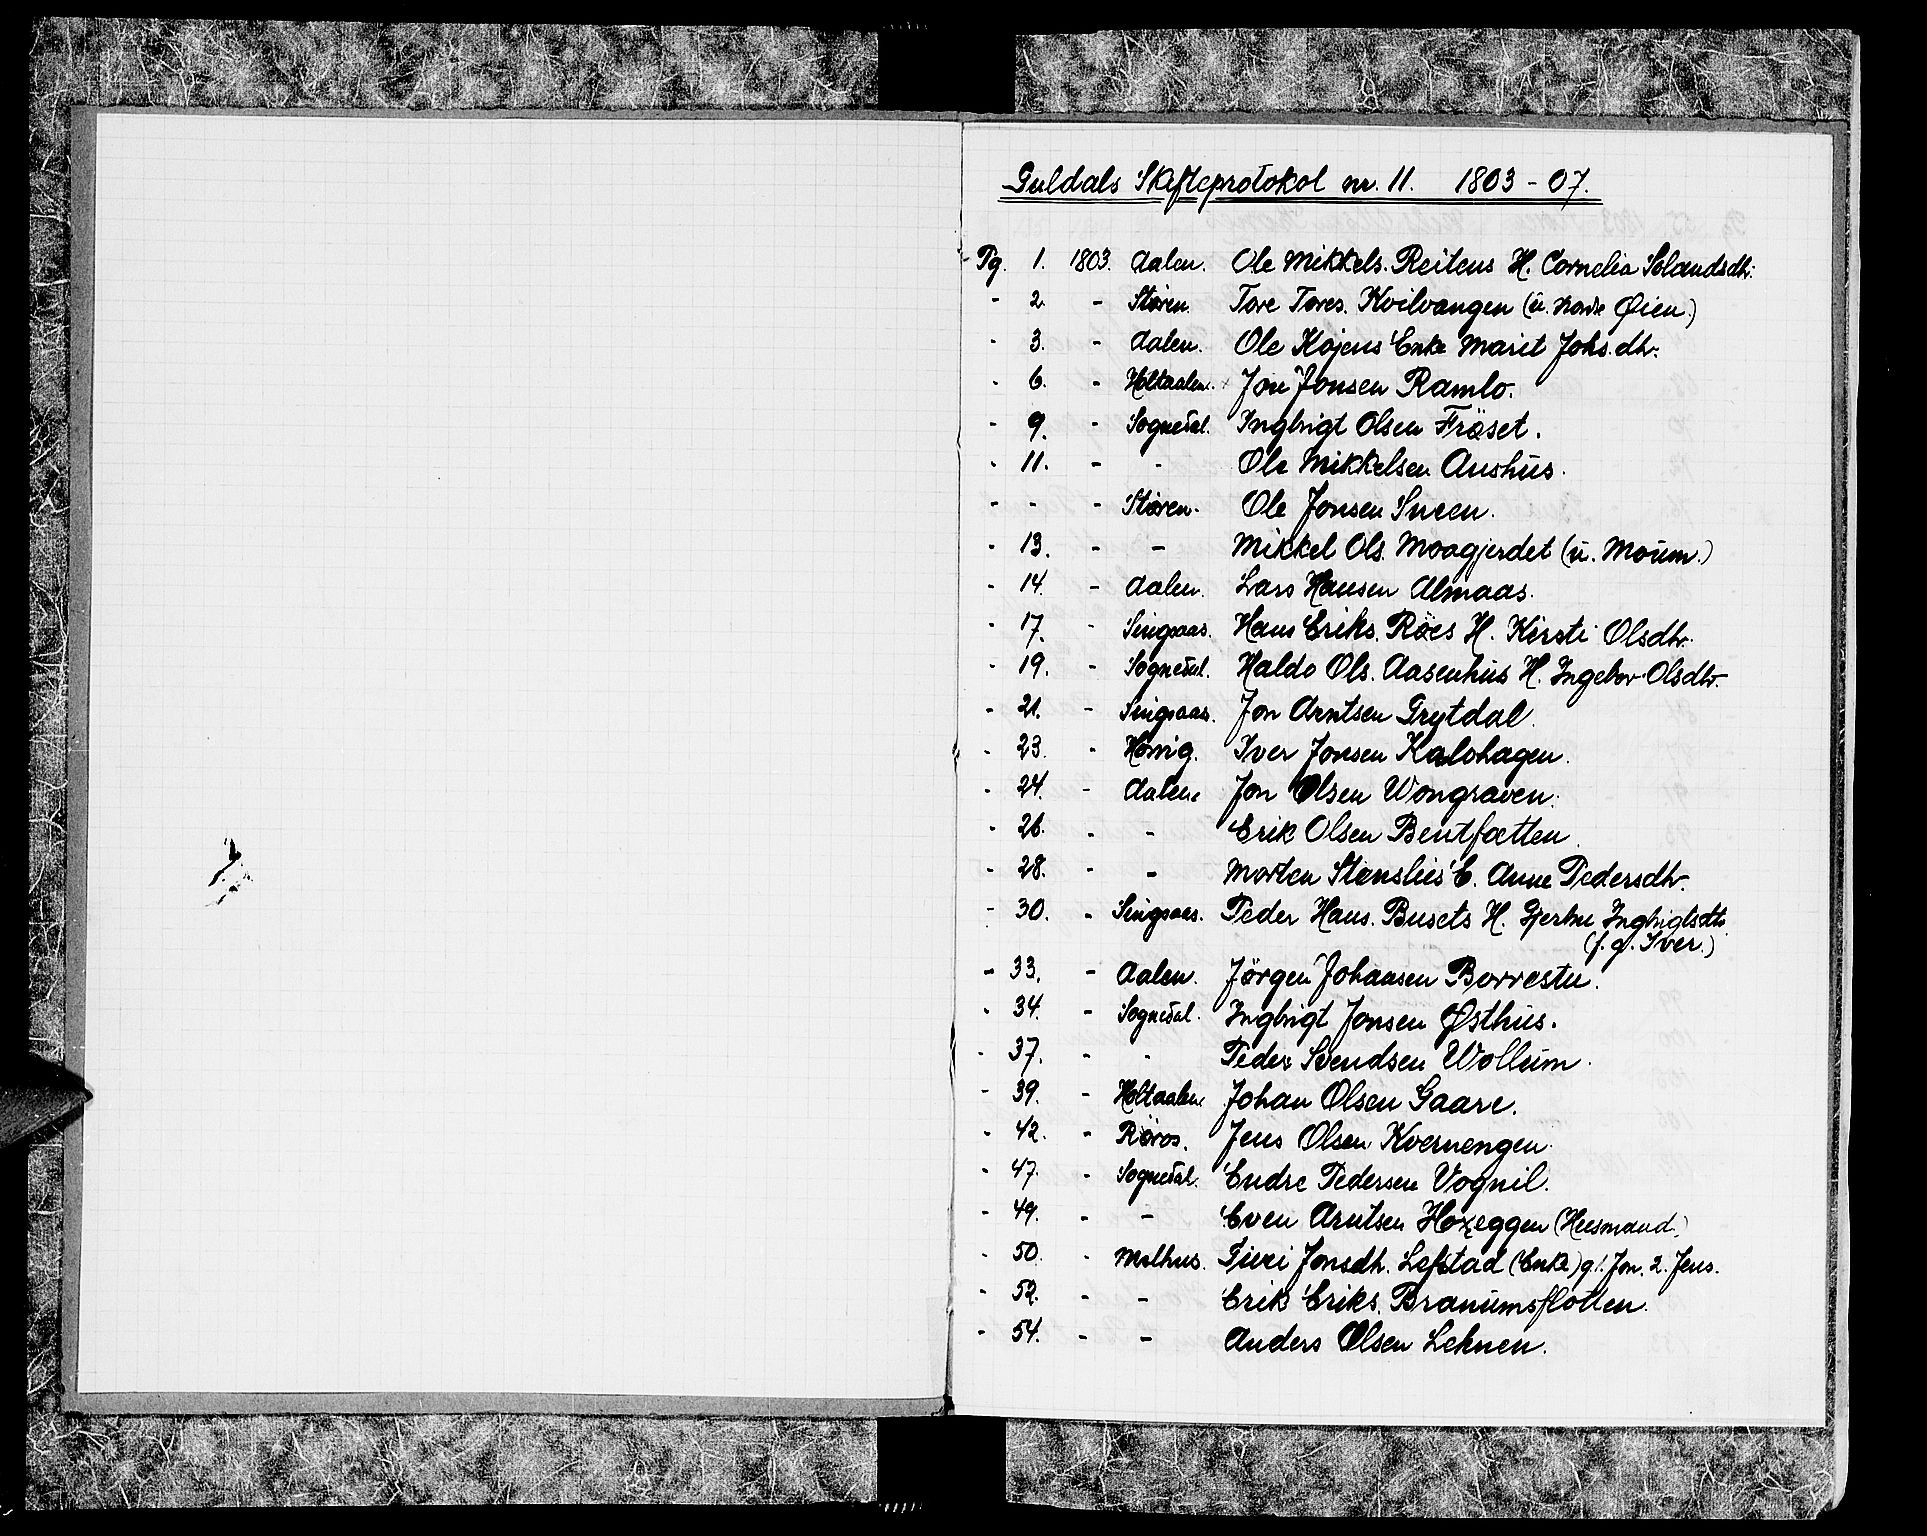 Guldals Skifteprotokol nr. 11. 1803-07.
Pg. 1. 1803. Aalen. Ole Mikkels. Reitens H. Cornelia Solandsdtr.
- 2. - Støren. Tore Tores. Kvilvangen (u. Øien.)
- 3. - Aalen. Ole Kojens Enke Marit Johs.dtr.
- 6. - Holtaalen. Jon Jonsen Ramlo.
- 9. - Sognedal. Ingbrigt Olsen Fröset.
- 11. - - Ole Mikkelsen Aushus.
- - - Støren. Ole Jonsen Sneen.
- 13. - - Mikkel Ols. Moagjerdet (u. Moum.)
- 14. - Aalen. Lars Hansen Almaas.
- 17. - Singsaas. Hans Eriks. Röes H. Kirsti Olsdtr.
- 19. - Sognedal. Haldo Ols. Aasenhus H. Ingebor Olsdtr.
- 21. - Singsaas. Jon Arntsen Grytdal.
- 23. - Hörrig. Iver Jonsen Kalvhagen.
- 24. - Aalen. Jon Olsen Wongraven.
- 26. - - Erik Olsen Bentfætten.
- 28. - - Morten Stenslies E. Anne Pedersdtr.
- 30. - Singsaas. Peder Hans. Busets H. Gjertru Ingbrigtsdtr.
(f. g. Iver.)
- 33. - Aalen. Jörgen Johansen Borrestu.
- 34. - Sognedal. Ingbrigt Jonsen Østhus.
- 37. - - Peder Svendsen Wollum.
- 39. - Holtaalen. Johan Olsen Gaare.
- 42. - Røros. Jens Olsen Kvernengen.
- 47. - Sognedal. Endre Pedersen Vognil.
- 49. - - Even Arntsen Hoxeggen (Huusmand.)
- 50. - Melhus. Siri Jonsdtr. Lefstad (Enke) g 1. Jon. 2. Jens.
- 52. - - Erik Eriks. Branumsflotten.
- 54. - - Anders Olsen Lehnen.